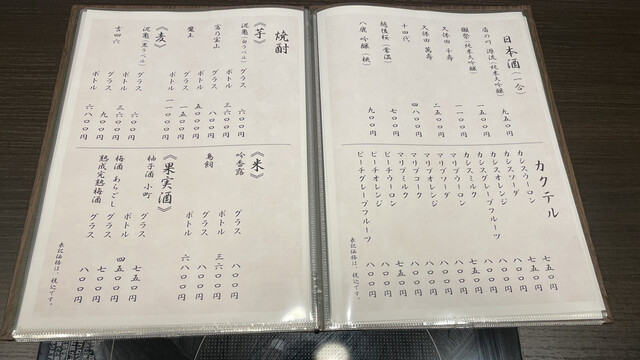 日本酒(一合)
川 源流(純米大吟醸) 九五〇円
獺祭(純米大吟醸) 一五〇〇円
久保田 千寿 一一〇〇円
久保田 萬寿 二五〇〇円
十四代 四八〇〇円
越後桜(常温) 七〇〇円
八鹿 吟醸(桃) 九〇〇円
カクテル
カシスウーロン 七五〇円
カシスソーダ 七五〇円
カシスオレンジ 八〇〇円
カシスグレープフルーツ 八〇〇円
カシスミルク 八〇〇円
マリブウーロン 七五〇円
マリブオレンジ 八〇〇円
マリブコーク 八〇〇円
マリブミルク 八〇〇円
ピーチウーロン 七五〇円
ピーチオレンジ 八〇〇円
ピーチグレープフルーツ 八〇〇円
表記価格は、税込です。
焼酎
《芋》
沢亀(白ラベル) グラス 六〇〇円
ボトル 三六〇〇円
富乃宝山 グラス 八〇〇円
ボトル 五〇〇〇円
魔王 グラス 一五〇〇円
ボトル 一一〇〇〇円
《麦》
沢亀(黒ラベル) グラス 六〇〇円
ボトル 三六〇〇円
吉四六 グラス 九〇〇円
ボトル 六八〇〇円
《米》
吟香露 グラス 八〇〇円
ボトル 三六〇〇円
鳥飼 グラス 八〇〇円
ボトル 六八〇〇円
《果実酒》
柚子酒 小町 グラス 七五〇円
ボトル 四五〇〇円
梅酒 あらごし グラス 七〇〇円
熟成完熟梅酒 グラス 八〇〇円
表記価格は、税込です。